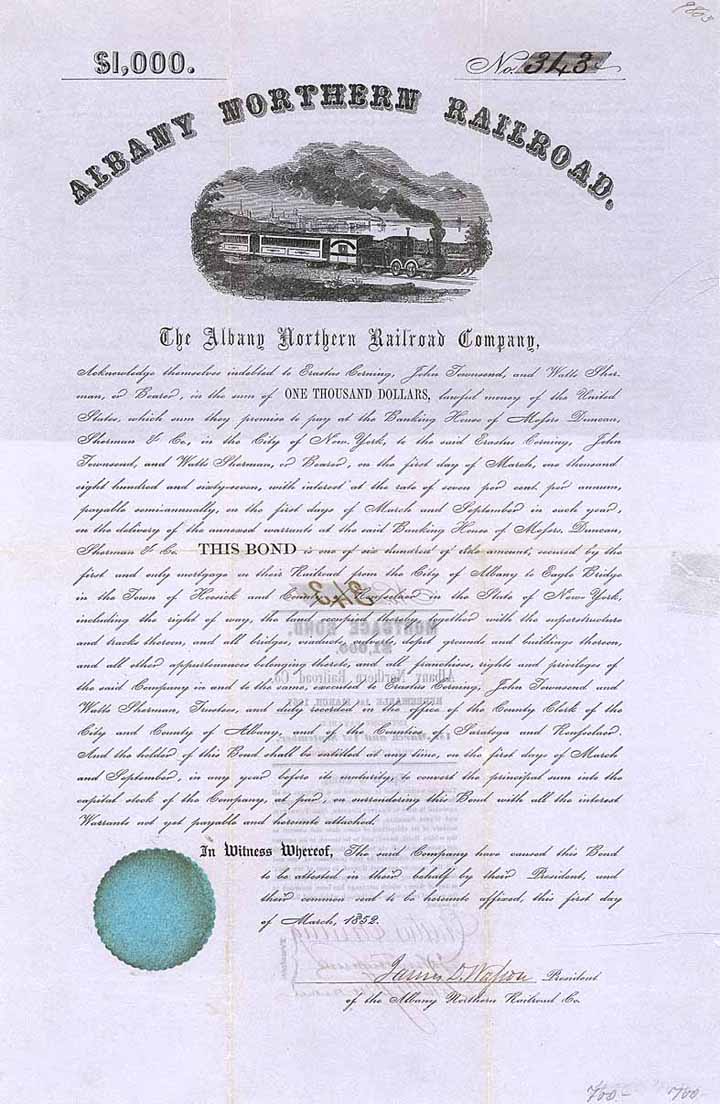 $1,000.
No. 343
ALBANY NORTHERN RAILROAD.
The Albany Northern Railroad Company,
Acknowledge themselves indebted to Erastus Corning, John Townsend, and Watts Sher-
man, or Bearer, in the sum of ONE THOUSAND DOLLARS, lawful money of the United
States, which sum they promise to pay at the Banking House of Messrs Duncan,
Sherman & Co., in the City of New-York, to the said Erastus Corning, John
Townsend, and Watts Sherman, or Bearer, on the first day of March, one thousand
eight hundred and sixty-seven, with interest at the rate of seven per cent. per annum,
payable semi-annually, on the first days of March and September in each year,
on the delivery of the annexed warrants at the said Banking House of Messrs. Duncan,
Sherman & Co. THIS BOND is one of six hundred of like amount, secured by the
first and only mortgage on their Railroad from the City of Albany to Eagle Bridge
in the Town of Hoosick and County of Rensselaer in the State of New York,
including the right of way, the land occupied thereby, together with the superstructure
and tracks thereon, and all bridges, viaducts, culverts, depot grounds and buildings thereon,
and all other appurtenances belonging thereto, and all franchises, rights and privileges of
the said Company in and to the same, executed to Erastus Corning, John Townsend and
Watts Sherman, Trustees, and duly recorded in the office of the County Clerk of the
City and County of Albany, and of the Counties of Saratoga and Rensselaer.
And the holder of this Bond shall be entitled at any time, on the first day of March
and September, in any year before its maturity, to convert the principal sum into the
capital stock of the Company, at par, on surrendering this Bond with all the interest
Warrants not yet payable and hereunto attached.
In Witness Whereof, The said Company have caused this Bond
to be attested in their behalf by their President, and
their common seal to be hereunto affixed, this first day
of March, 1852.
James D. Wasson President
of the Albany Northern Railroad Co.
700.- 700-